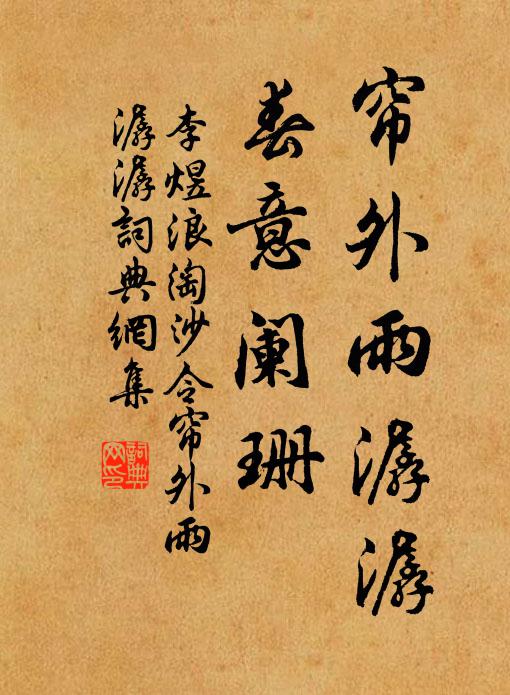 帘外雨潺潺
春意阑珊
李煜浪淘沙令帘外雨
潺潺詞典網集
詞典
网印